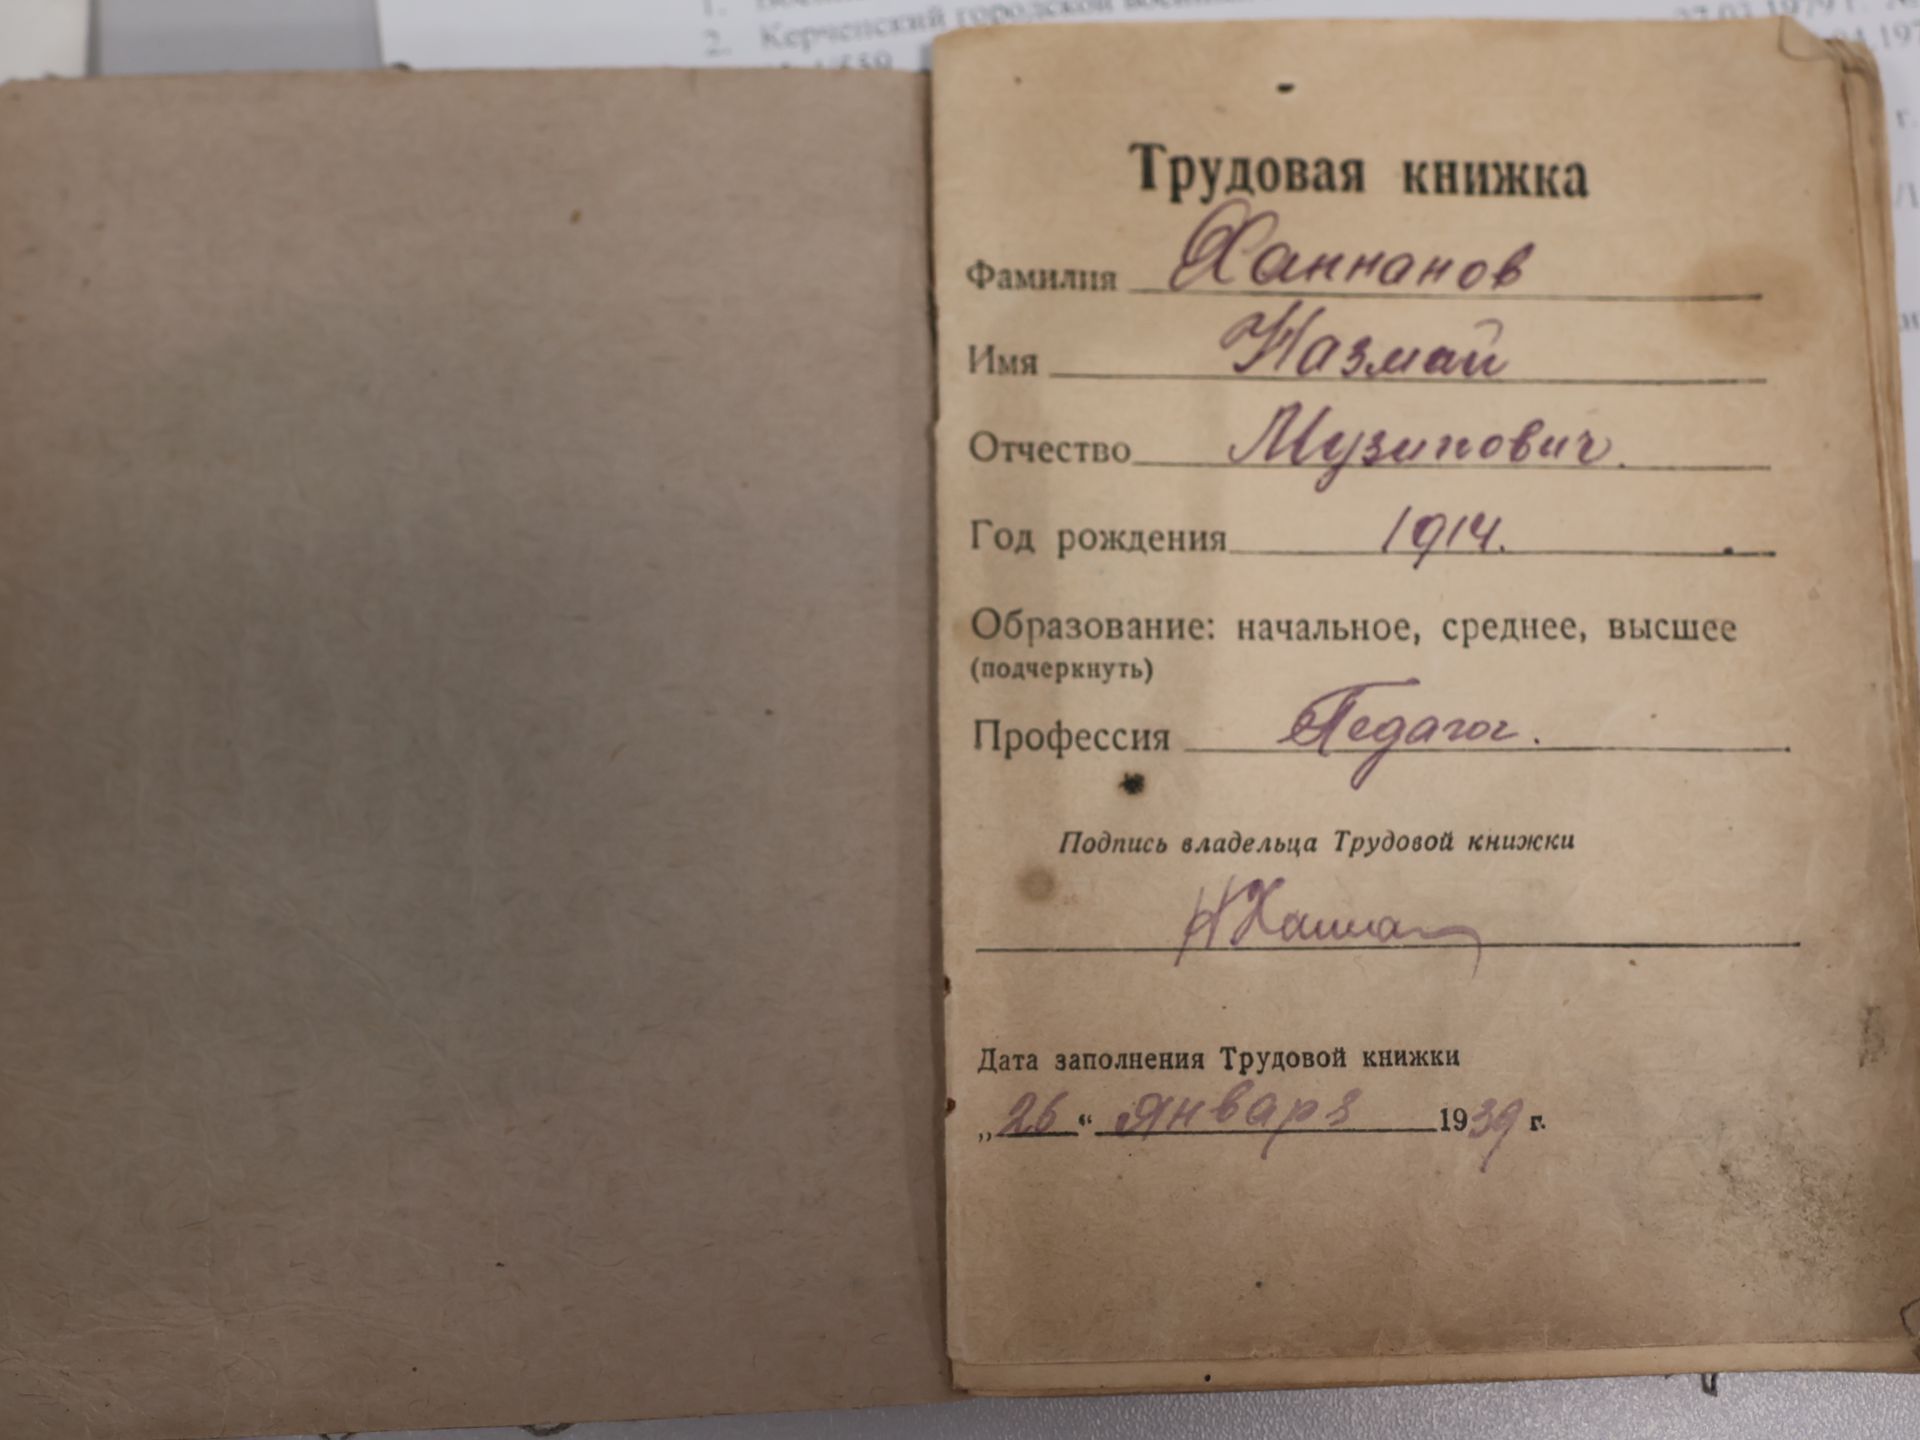 2. Керченский городской
Трудовая книжка
Фамилия Ханнанов
Имя Назмай
Отчество Музипович.
Год рождения 1914.
Образование: начальное, среднее, высшее
(подчеркнуть)
Профессия Педагог.
Подпись владельца Трудовой книжки
Дата заполнения Трудовой книжки
„26“ января 1939 г.